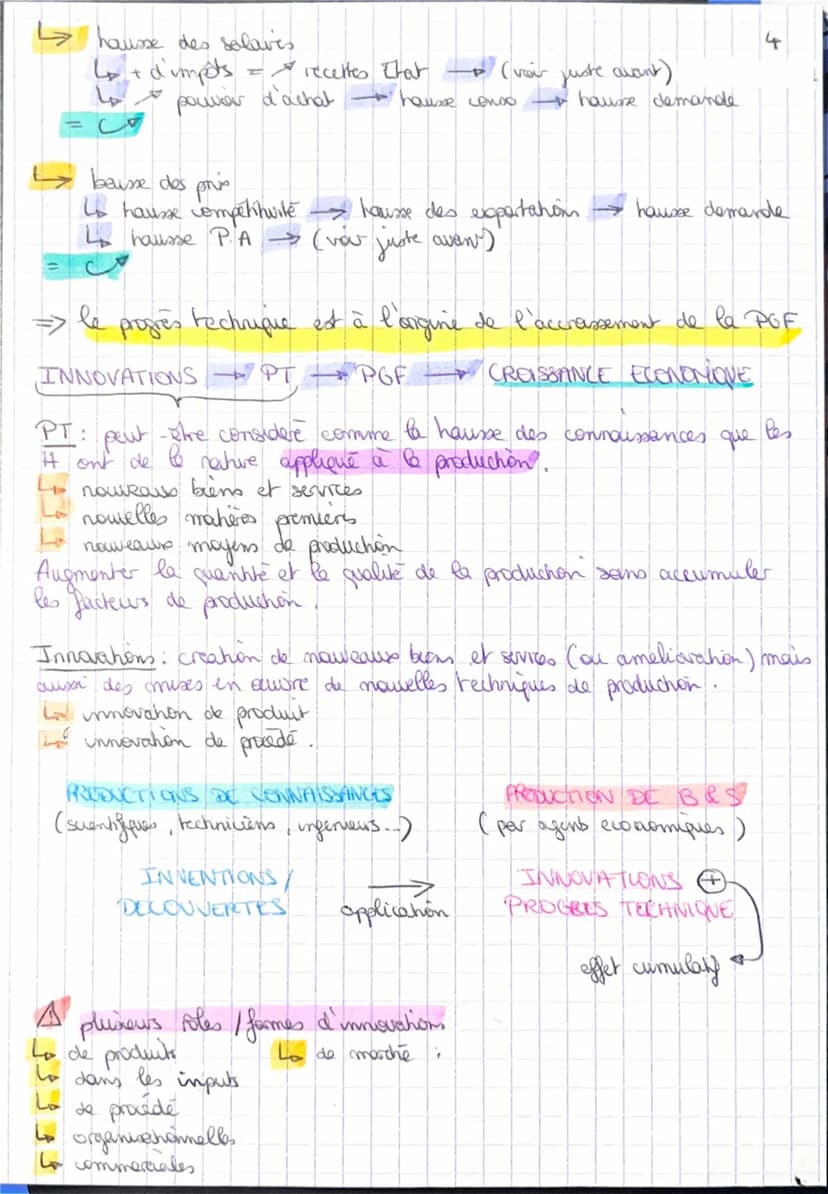 4
↳ hausse des salaires
↳ + d'impôts = ↗ recettes Etat → (voir juste avant)
↳ ↗ pouvoir d'achat → hausse conso → hausse demande
= C↗
↳ baisse des prix
↳ hausse compétitivité → hausse des exportations → hausse demande
↳ hausse P.A → (voir juste avant)
= C↗
⇒ le progrès technique est à l'origine de l'accroissement de la PGF
INNOVATIONS → PT → PGF → CROISSANCE ECONOMIQUE
PT : peut-être considéré comme la hausse des connaissances que les
H ont de la nature appliqué à la production.
↳ nouveaux biens et services
↳ nouvelles matières premières
↳ nouveaux moyens de production
Augmenter la quantité et la qualité de la production sans accumuler
les facteurs de production.
Innovations : création de nouveaux biens et services (ou amélioration) mais
aussi des mises en œuvre de nouvelles techniques de production.
↳ innovation de produit
↳ innovation de procédé.
PRODUCTIONS DE CONNAISSANCES
(scientifiques, techniciens, ingénieurs...)
INVENTIONS /
DECOUVERTES
→
application
PRODUCTION DE B & S
(par agents économiques)
INNOVATIONS +
PROGRES TECHNIQUE
effet cumulatif
⚠ plusieurs rôles / formes d'innovations
↳ de produits
↳ de marché :
↳ dans les inputs
↳ de procédé
↳ organisationnelles
↳ commerciales